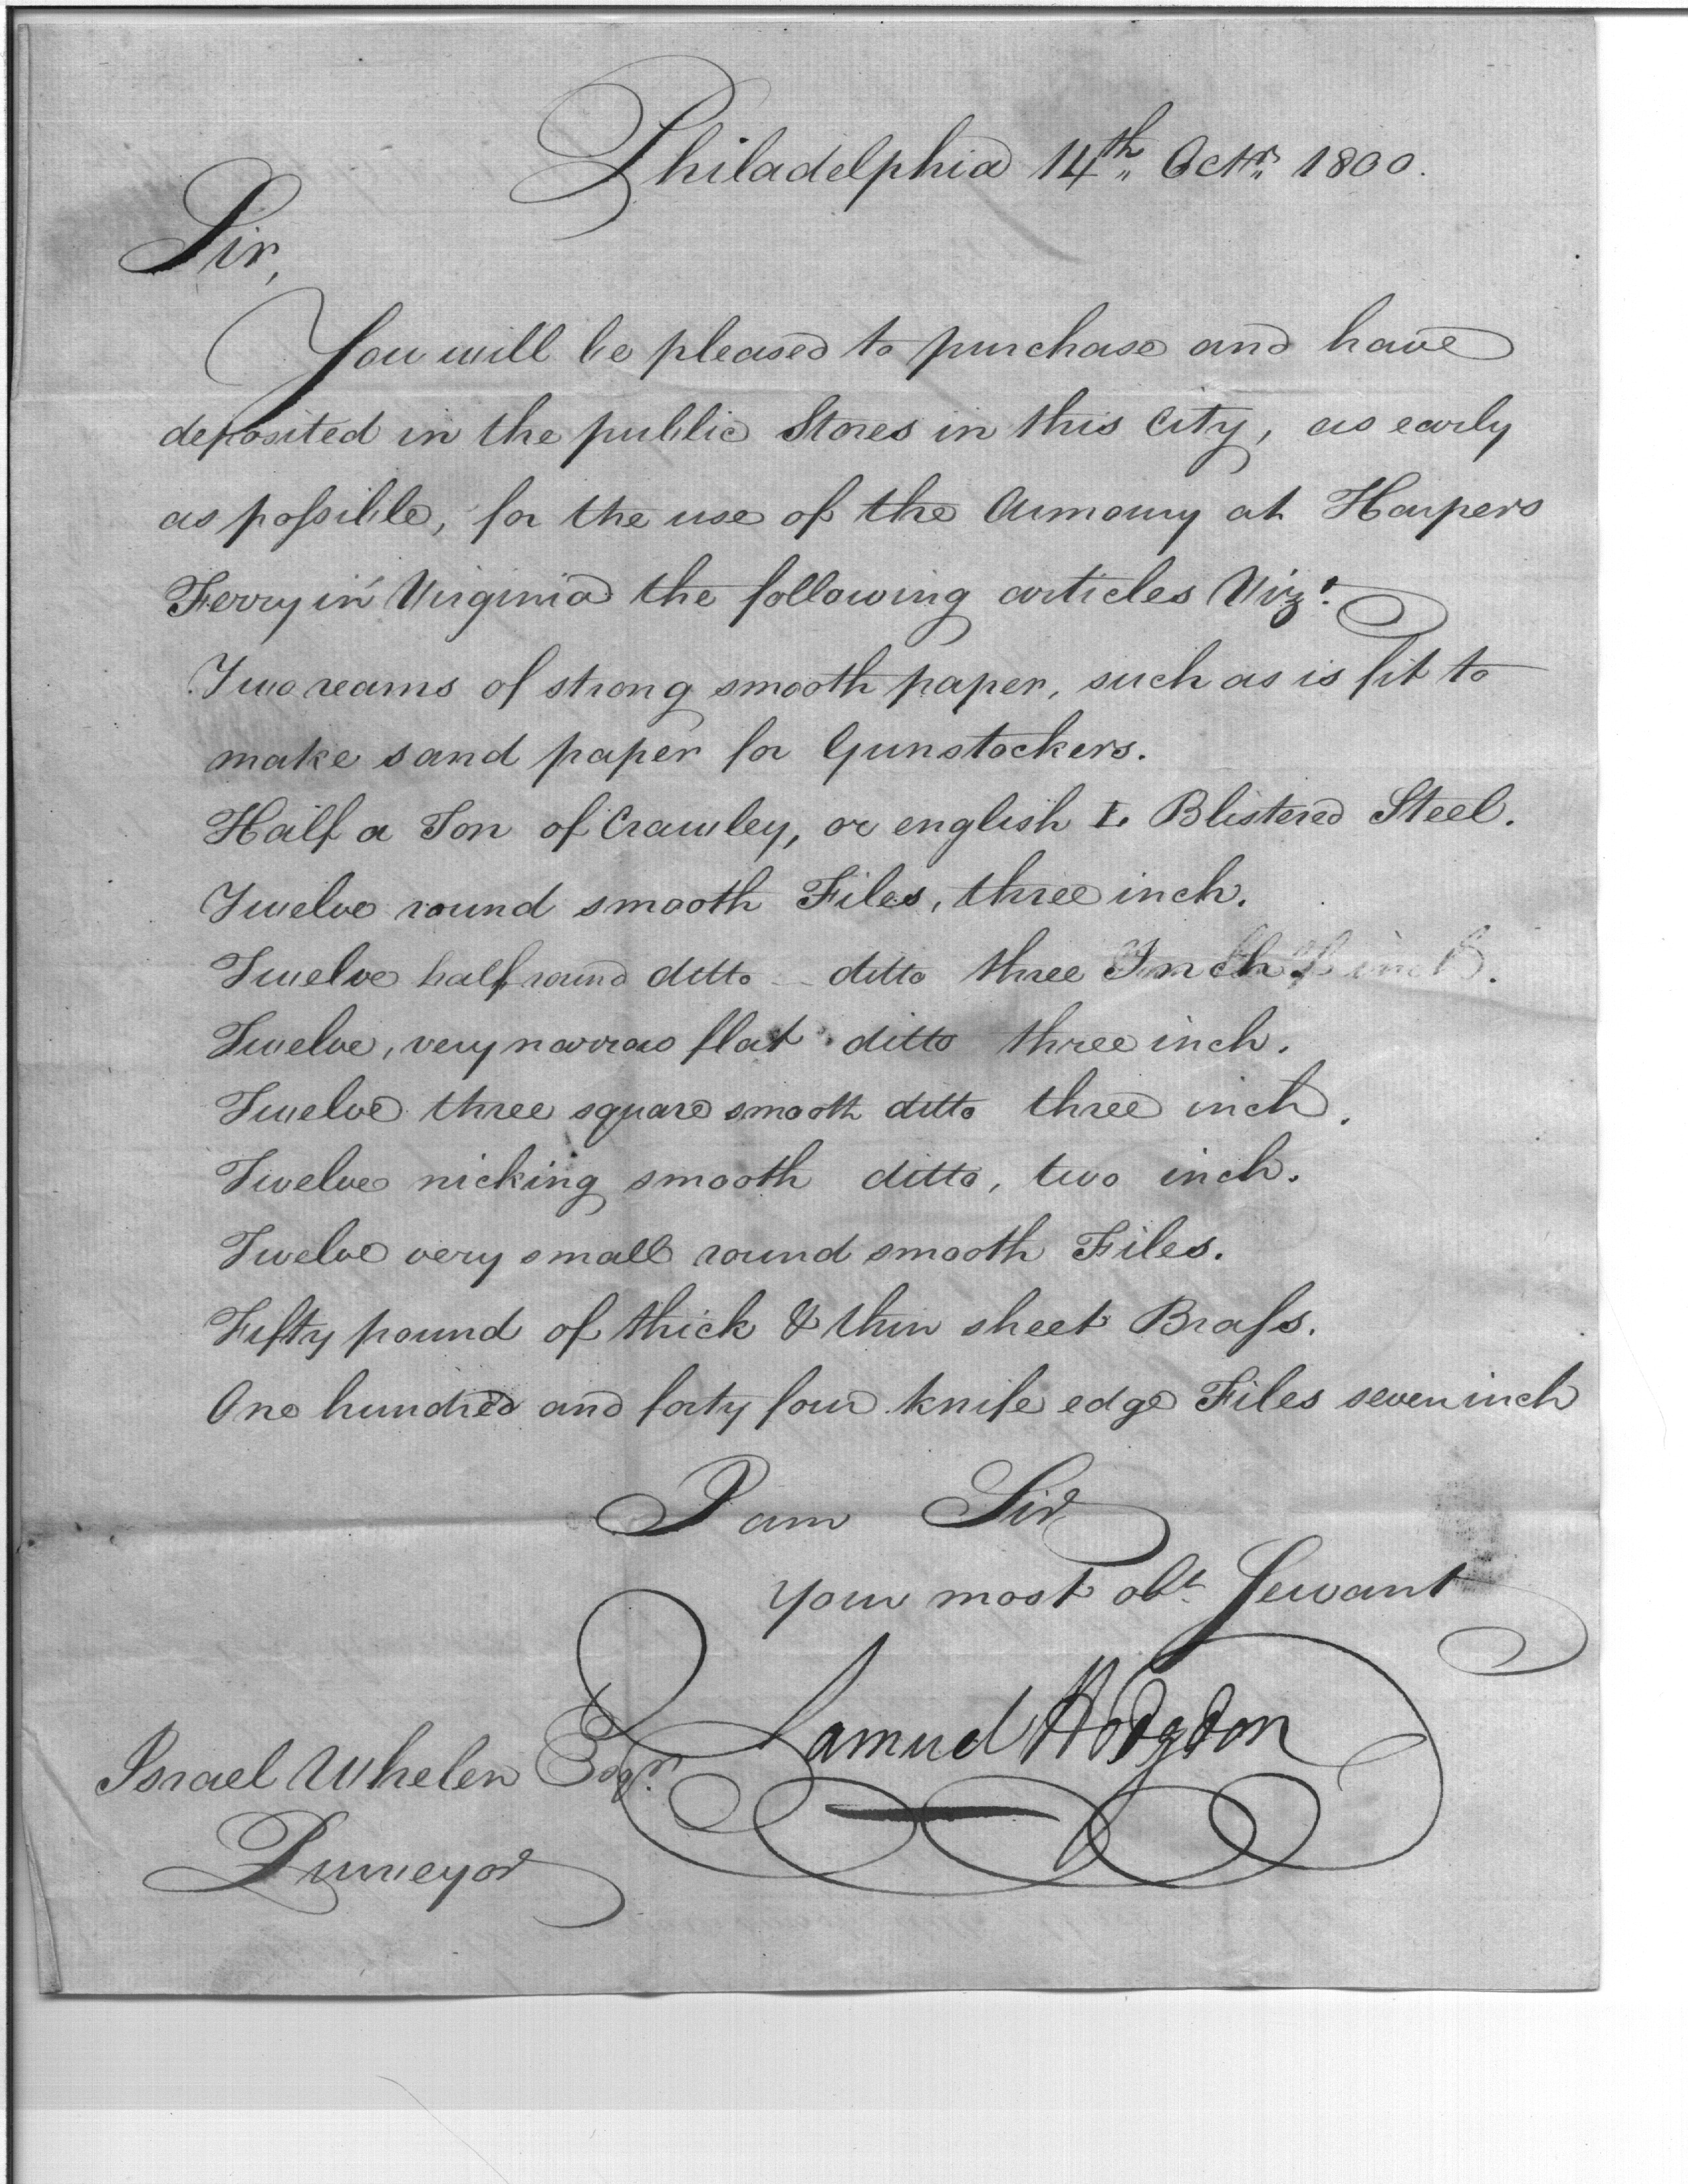 Philadelphia 14th Octr. 1800.
Sir,
You will be pleased to purchase and have
deposited in the public Stores in this City, as early
as possible, for the use of the Armoury at Harpers
Ferry in Virginia the following articles Vizt.
Two reams of strong smooth paper, such as is fit to
make sand paper for Gunstockers.
Half a Ton of Crawley, or english L. Blistered Steel.
Twelve round smooth Files, three inch.
Twelve half round ditto - ditto three Inch.
Twelve, very narrow flat ditto three inch.
Twelve three square smooth ditto three inch.
Twelve nicking smooth ditto, two inch.
Twelve very small round smooth Files.
Fifty pound of thick & thin sheet Brass.
One hundred and forty four knife edge Files seven inch
I am Sir
your most obt. Servant
Samuel Hodgdon
Israel Whelen Esqr.
Purveyor